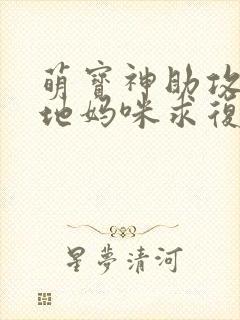 萌寶神助攻
地媽咪求復
星夢清河